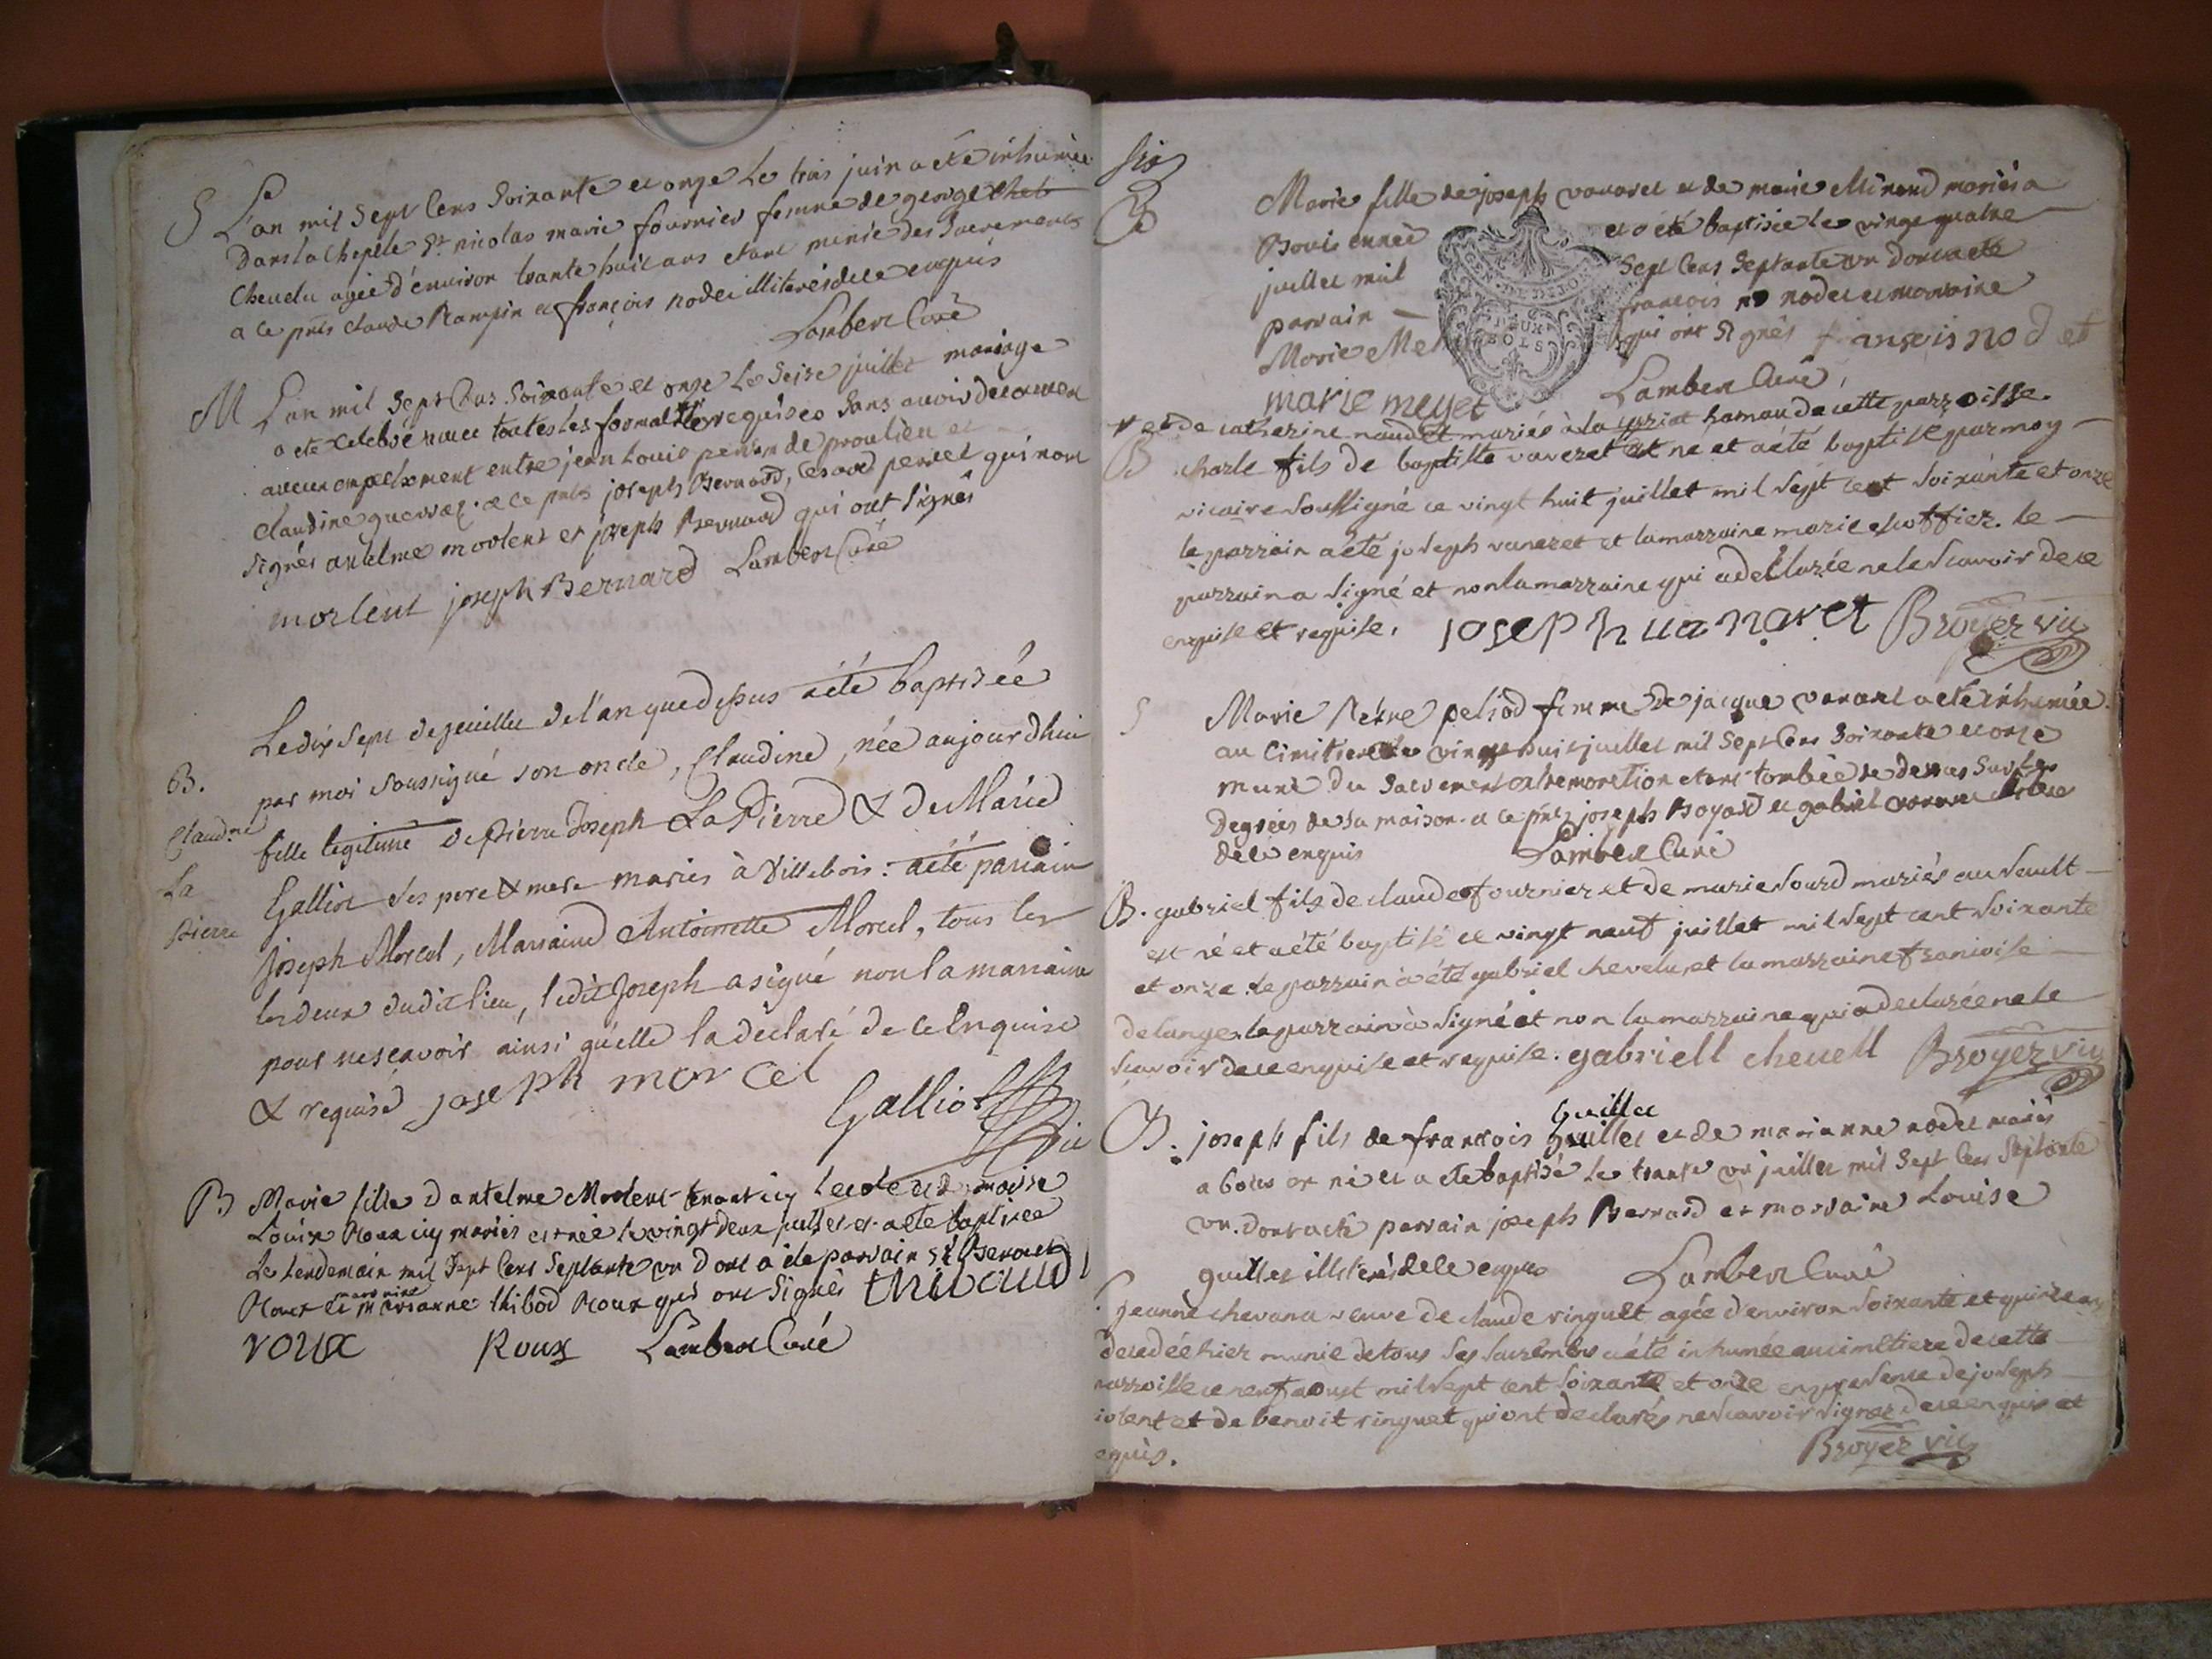 S L'an mil Sept Cens Soixante et onze Le trois juin a eté inhumée
Dans la Chapelle St. nicolas marie fournier femme de george
Chevelu agée d'environ trante huit ans etant munie des Sacrements
a ce pnts Claude Rampin et françois nodet illiterés de ce enquis
Lambert Curé
M L'an mil Sept Cens Soixante et onze Le Seise juillet mariage
a eté celebré avec toutes les formalités requises Sans avoir decouvert
aucun empechement entre jean Louis perrin de proulieu et
Claudine a ce pnts joseph Bernard, perret qui n'ont
Signés antelme morlent et joseph Bernard qui ont Signés
morlent joseph Bernard Lambert Curé
Le dix Sept de jeuillet de l'an que dessus a été baptisée
B. par moi Soussigné son oncle, Claudine, née aujourdhui
Claudne fille legitime de Pierre Joseph La Pierre & de Marie
La Galliot Ses pere & mere mariés à Villebois : a été parrain
Pierre Joseph Morcel, Marraine Antoinette Morcel, tous les
les deux dudit lieu, ledit Joseph a signé non la marraine
pour ne scavoir ainsi qu'elle l'a déclaré de ce Enquise
& requise joseph morcel
Galliot Vic
B Marie fille d'antelme Morlent
Louise Roux icy mariés est née le vingt deux juillet et a eté baptisée
Le Lendemain mil Sept Cens Septante un dont a été parrain Sr
marraine
Roux et marianne thibod Roux qui ont Signés thibaud
roux Roux Lambert Curé
Six
B Marie fille de joseph vanaret et de marie mariés a
Bouis et née et a été baptisée le vingt quatre
juillet mil Sept Cens Septante un dont a eté
parrain francois nodet et marraine
Marie Me qui ont Signés fransois nod et
marie meyet Lambert Curé
et de catherine naudet mariés à la hamau de cette parroisse.
B charle fils de baptiste vavezet est né et a été baptisé par moy
vicaire Soussigné ce vingt huit juillet mil Sept cent Soixante et onze
le parrain a eté joseph vanezet et la marraine marie escoffier. le
parrain a Signé et non la marraine qui a declarée ne le Scavoir de ce
enquise et requise. joseph uanaret Broyer vic
S Marie peliod femme de jacque vanaret a eté inhumée
au Cimitiere le vingt huit juillet mil Sept Cens Soixante et onze
muni du Sacrement extremonction etant tombée de dessus Sur les
Degrées de Sa maison. a ce pnts joseph Boyard et gabriel
de ce enquis Lambert Curé
B. gabriel fils de claude fournier et de marie Sourd mariés au Sault
est né et a été baptisé ce vingt neuf juillet mil Sept cent Soixante
et onze. le parrain à été gabriel chevelu, et la marraine francoise
delange. le parrain à Signé et non la marraine qui a declarée ne le
Scavoir de ce enquise et requise. gabriell chevell Broyer vic
Guillet
B. joseph fils de francois Guillet et de marianne nodet mariés
a bouis est né et a eté baptisé le trante un juillet mil Sept Cens Septante
un. dont a eté parrain joseph Bernard et marraine Louise
Guillet illiterés de ce enquis Lambert Curé
S jeanne chevana veuve de claude ringuet agée d'environ Soixante et quinze ans
decedée hier munie de tous Ses Sacrements a été inhumée au cimetiere de cette
parroisse ce neuf aoust mil Sept cent Soixante et onze en presence de joseph
et de benoit ringuet qui ont declarés ne Scavoir Signer de ce enquis et
enquis. Broyer vic